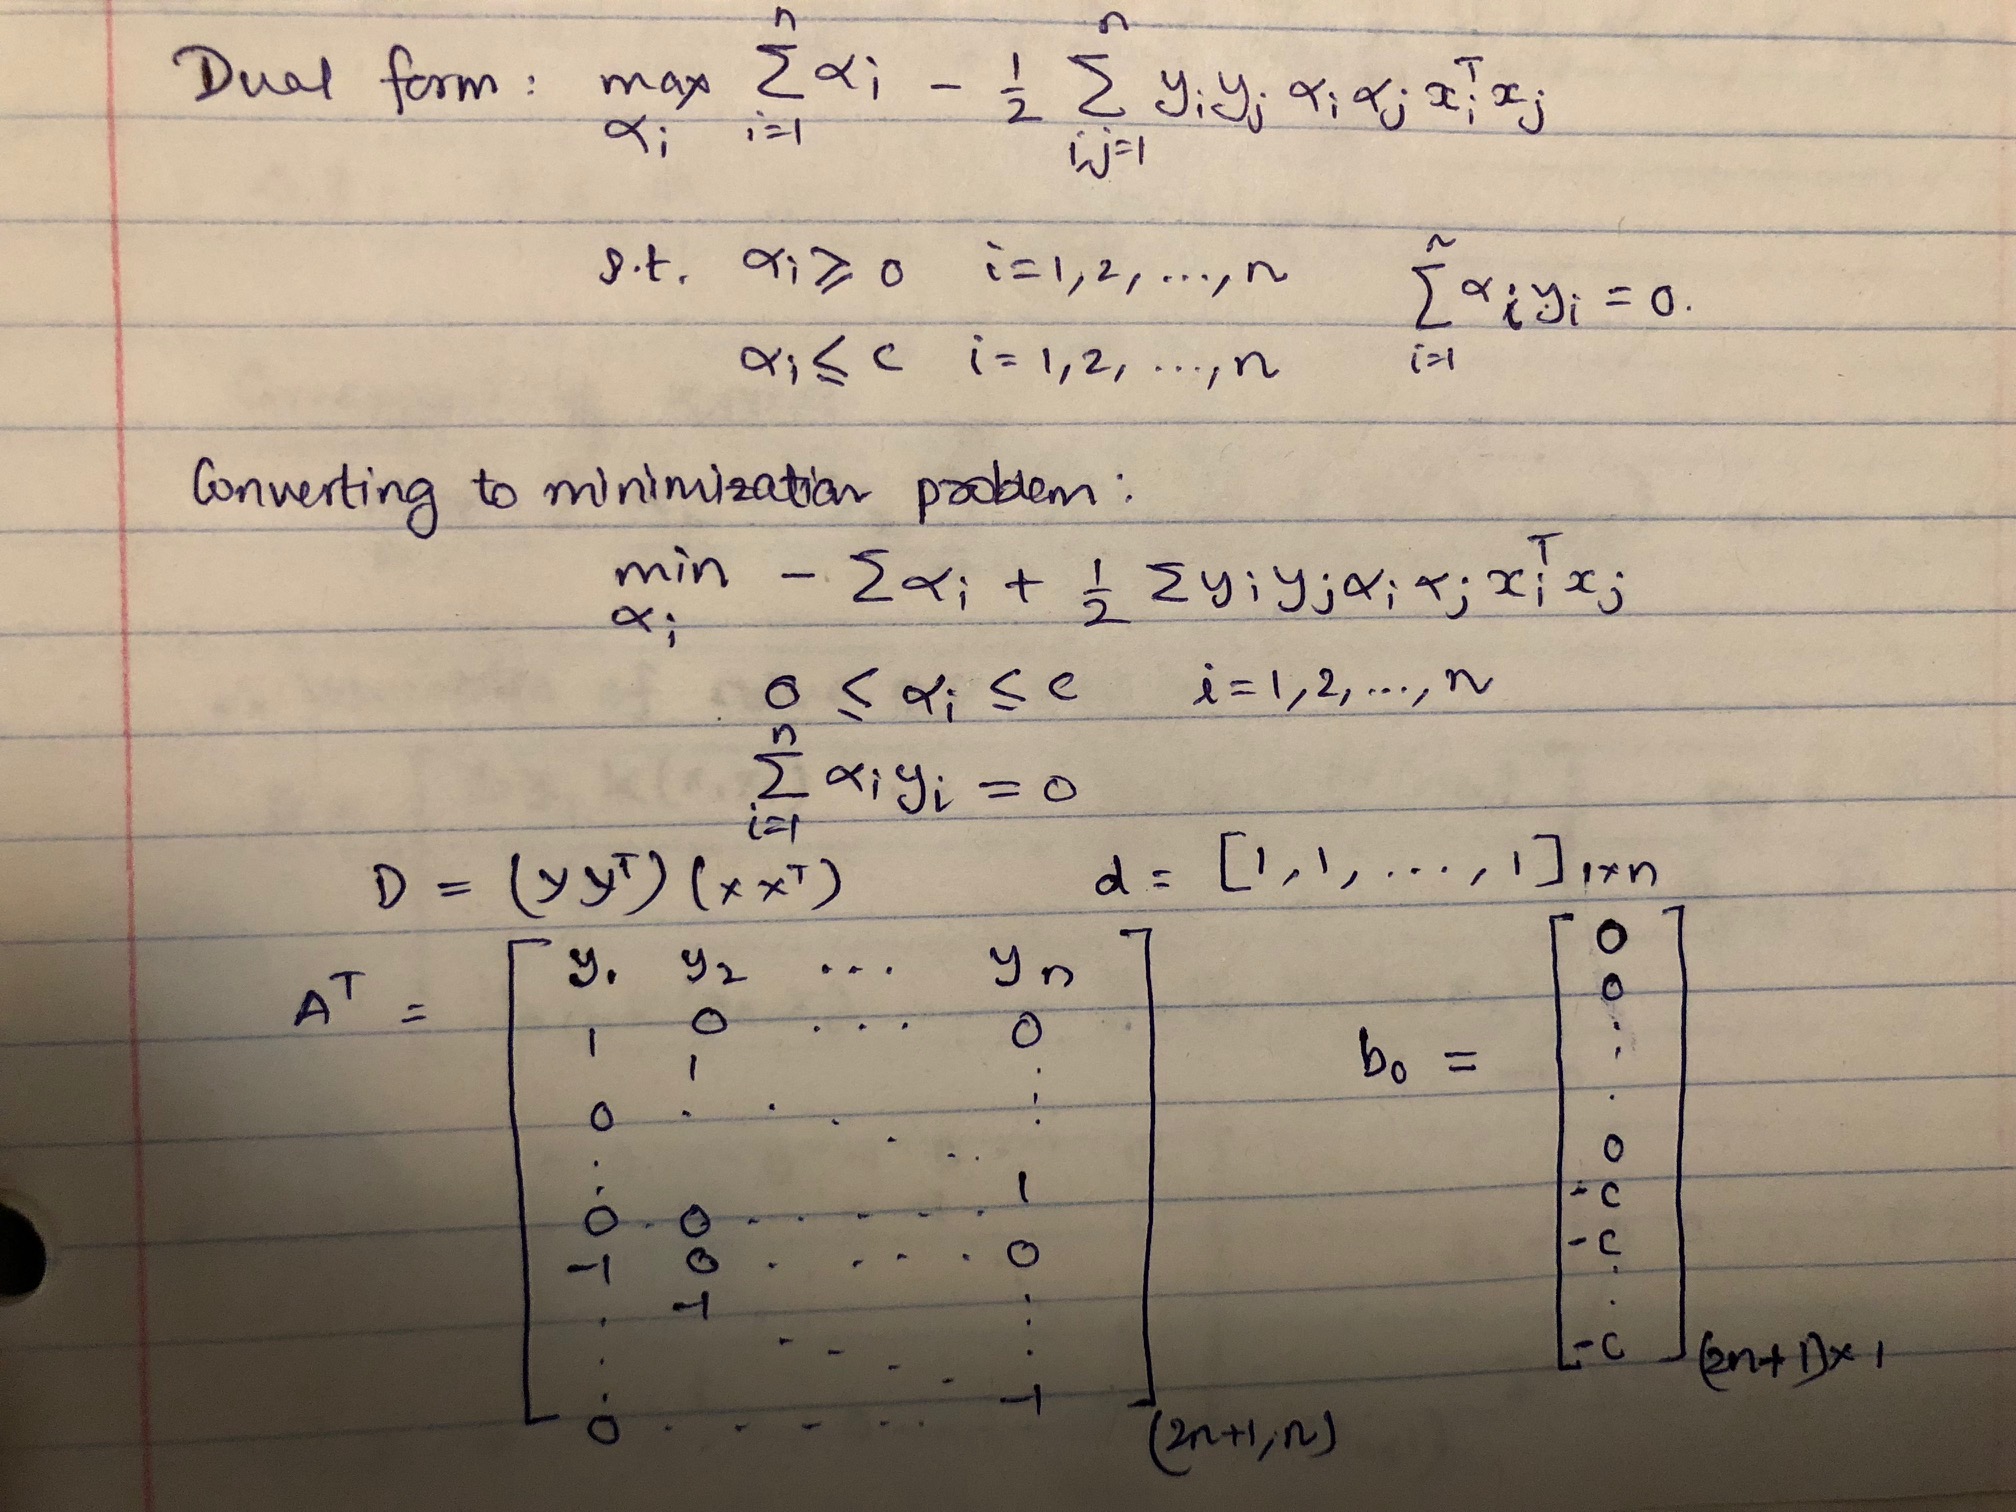 Dual form: max_{αᵢ} Σ_{i=1}^{n} αᵢ - 1/2 Σ_{i,j=1}^{n} yᵢyⱼ αᵢαⱼ xᵢᵀxⱼ
s.t. αᵢ ≥ 0 i=1,2,...,n Σ_{i=1}^{n} αᵢyᵢ = 0.
αᵢ ≤ c i=1,2,...,n
Converting to minimization problem:
min_{αᵢ} - Σαᵢ + 1/2 Σyᵢyⱼαᵢαⱼxᵢᵀxⱼ
0 ≤ αᵢ ≤ c i=1,2,...,n
Σ_{i=1}^{n} αᵢyᵢ = 0
D = (yyᵀ)(xxᵀ) d = [1,1,...,1]₁ₓₙ
Aᵀ = [ y₁ y₂ ... yₙ
1 0 ... 0
1 :
0 . . . . . :
: 1
0 . 0 . . . . . .
-1 0 . . . . . 0
-1 :
. - - - - :
0 . . . . . . -1 ] (2n+1,n)
b₀ = [ 0
0
:
.
0
-c
-c
:
-c ] (2n+1)×1